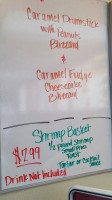 Caramel Drumstick
with Peanuts
Blizzard
&
Caramel Fudge
Cheesecake
Blizzard
Shrimp Basket
1/2 Pound Shrimp
Small Fries
Toast
Tartar or Cocktail
Sauce
$7.99
Drink Not Included